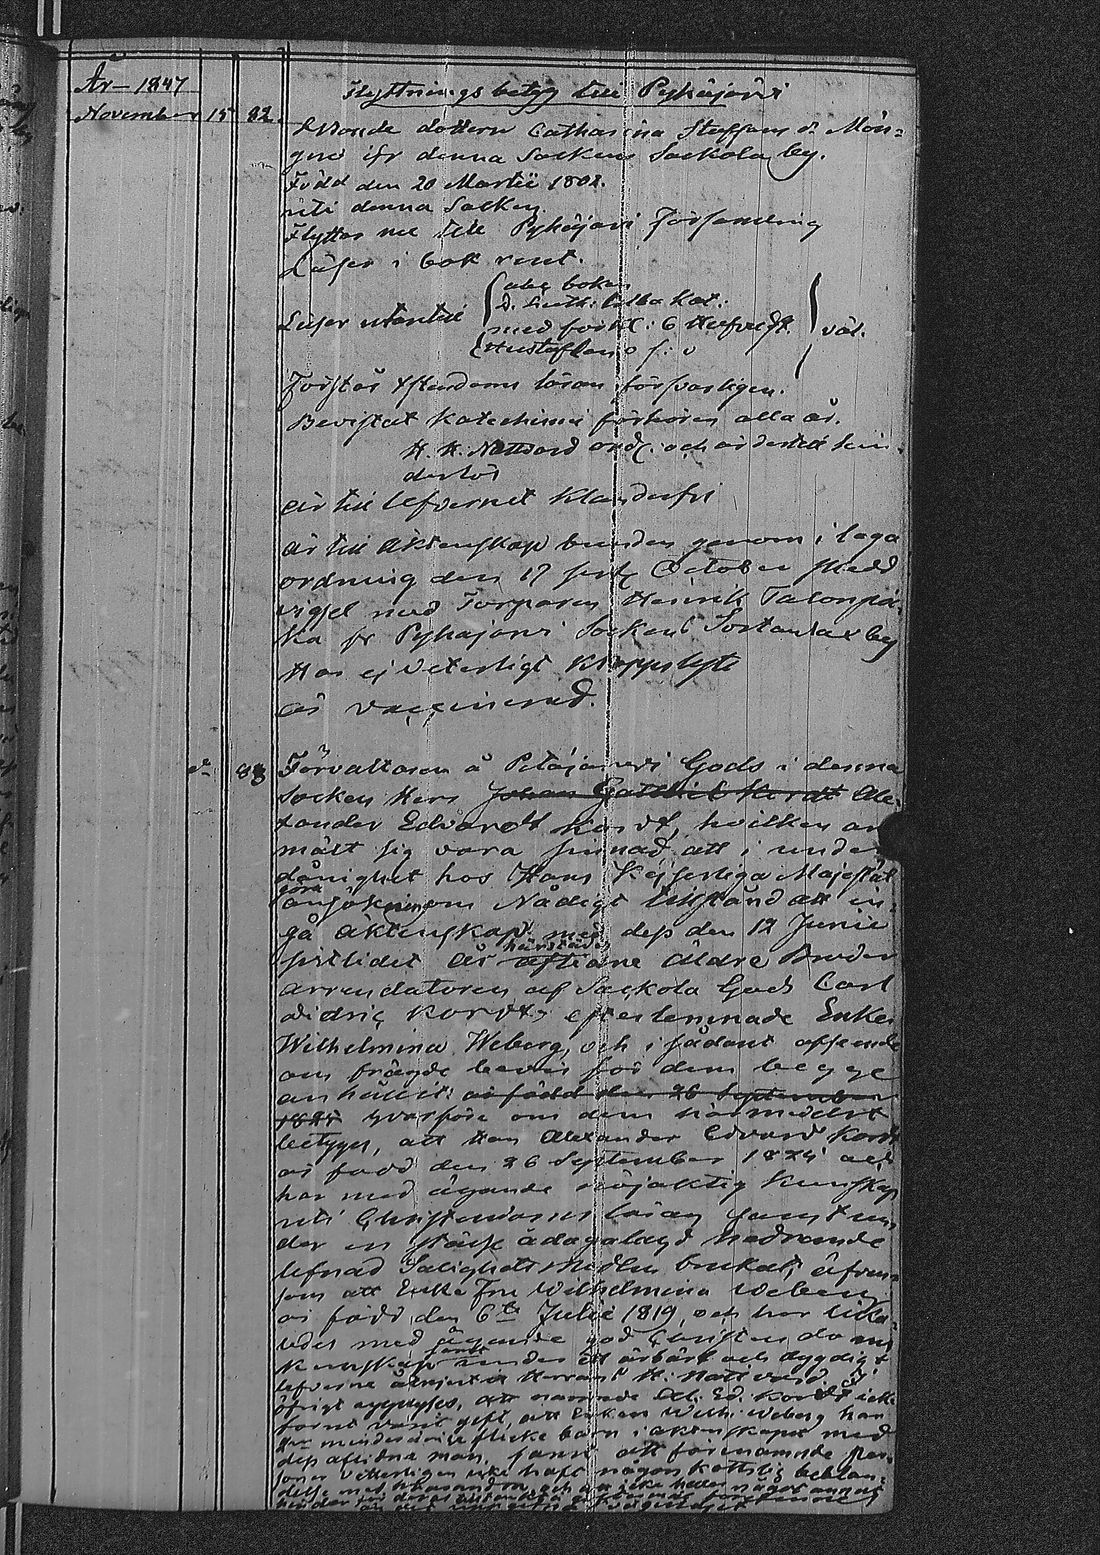 År 1847
November 15 82.
Flyttnings betyg till Pyhäjärvi
Bonde dottern Catharina Staffans dr Mön-
gne ifr denna Sockens Sackola by.
Född den 20 Martii 1802.
uti denna Socken
Flyttar nu till Pyhäjärvi Församling
Läser i bok rent.
Läser utantill
abc boken
D. Luth: lilla Kat.
med förkl: 6 Hufvudst.
Hustaflan
väl.
Förstår Christendoms läran försvarligen.
Bevistat Katechismi förhören alla år.
H. H. Nattvard och är dertill hin-
derlös
är till lefvernet klanderfri
är till Äktenskap bunden genom i laga
ordning den 17 October skedd
vigsel med Torparen Henrik Talonpoi-
ka fr Pyhäjärvi Sockens by
Har ej veterligt kroppslyte
är vaccinerad.
83
Förvaltaren å Petäjärvi Gods i denna
Socken Herr Johan Gottlieb Kordt Ale-
xander Edvardt Kordt, hvilken an-
mält sig vara sinnad att i under-
dånighet hos Hans Kejserliga Majestät
göra
ansökning om Nådigt tillstånd att in-
gå äktenskap med dess den 12 Junii
härstädes
sistlidet år aflidne äldre Broder
arrendatoren af Sackola Gods Carl
didric Kordts efterlemnade Enka
Wilhelmina Weberg, och i sådant afseende
om frägde bevis för dem begge
anhållit: är född den 26 September
1824 hvarföre om dem härmedelst
betygas, att Herr Alexander Edvard Kordt
är född den 26 September 1824 och
har med ägande nöjaktig kunskap
uti Christendoms läran samt un-
der en städse ådagalagd hedrande
lefnad Salighets medlen brukat, äfven-
som att Enke Fru Wilhelmina Weberg
är född den 6te Julii 1819, och har lika-
ledes med ägande god Christendoms
kunskap samt under ett ärbart och dygdigt
lefverne åtnjutit Herrans H. Nattvard. I
öfrigt betygas, att nämnde Al. Ed. Kordt icke
förut varit gift, att Enkan Wilh: Weberg har
minderåriga flicke barn i äktenskapet med
dess aflidna man, samt att förenämnde per-
soner vetterligen icke haft någon köttslig beblan-
delse med hvarandra och att icke heller något annat
hinder för deras